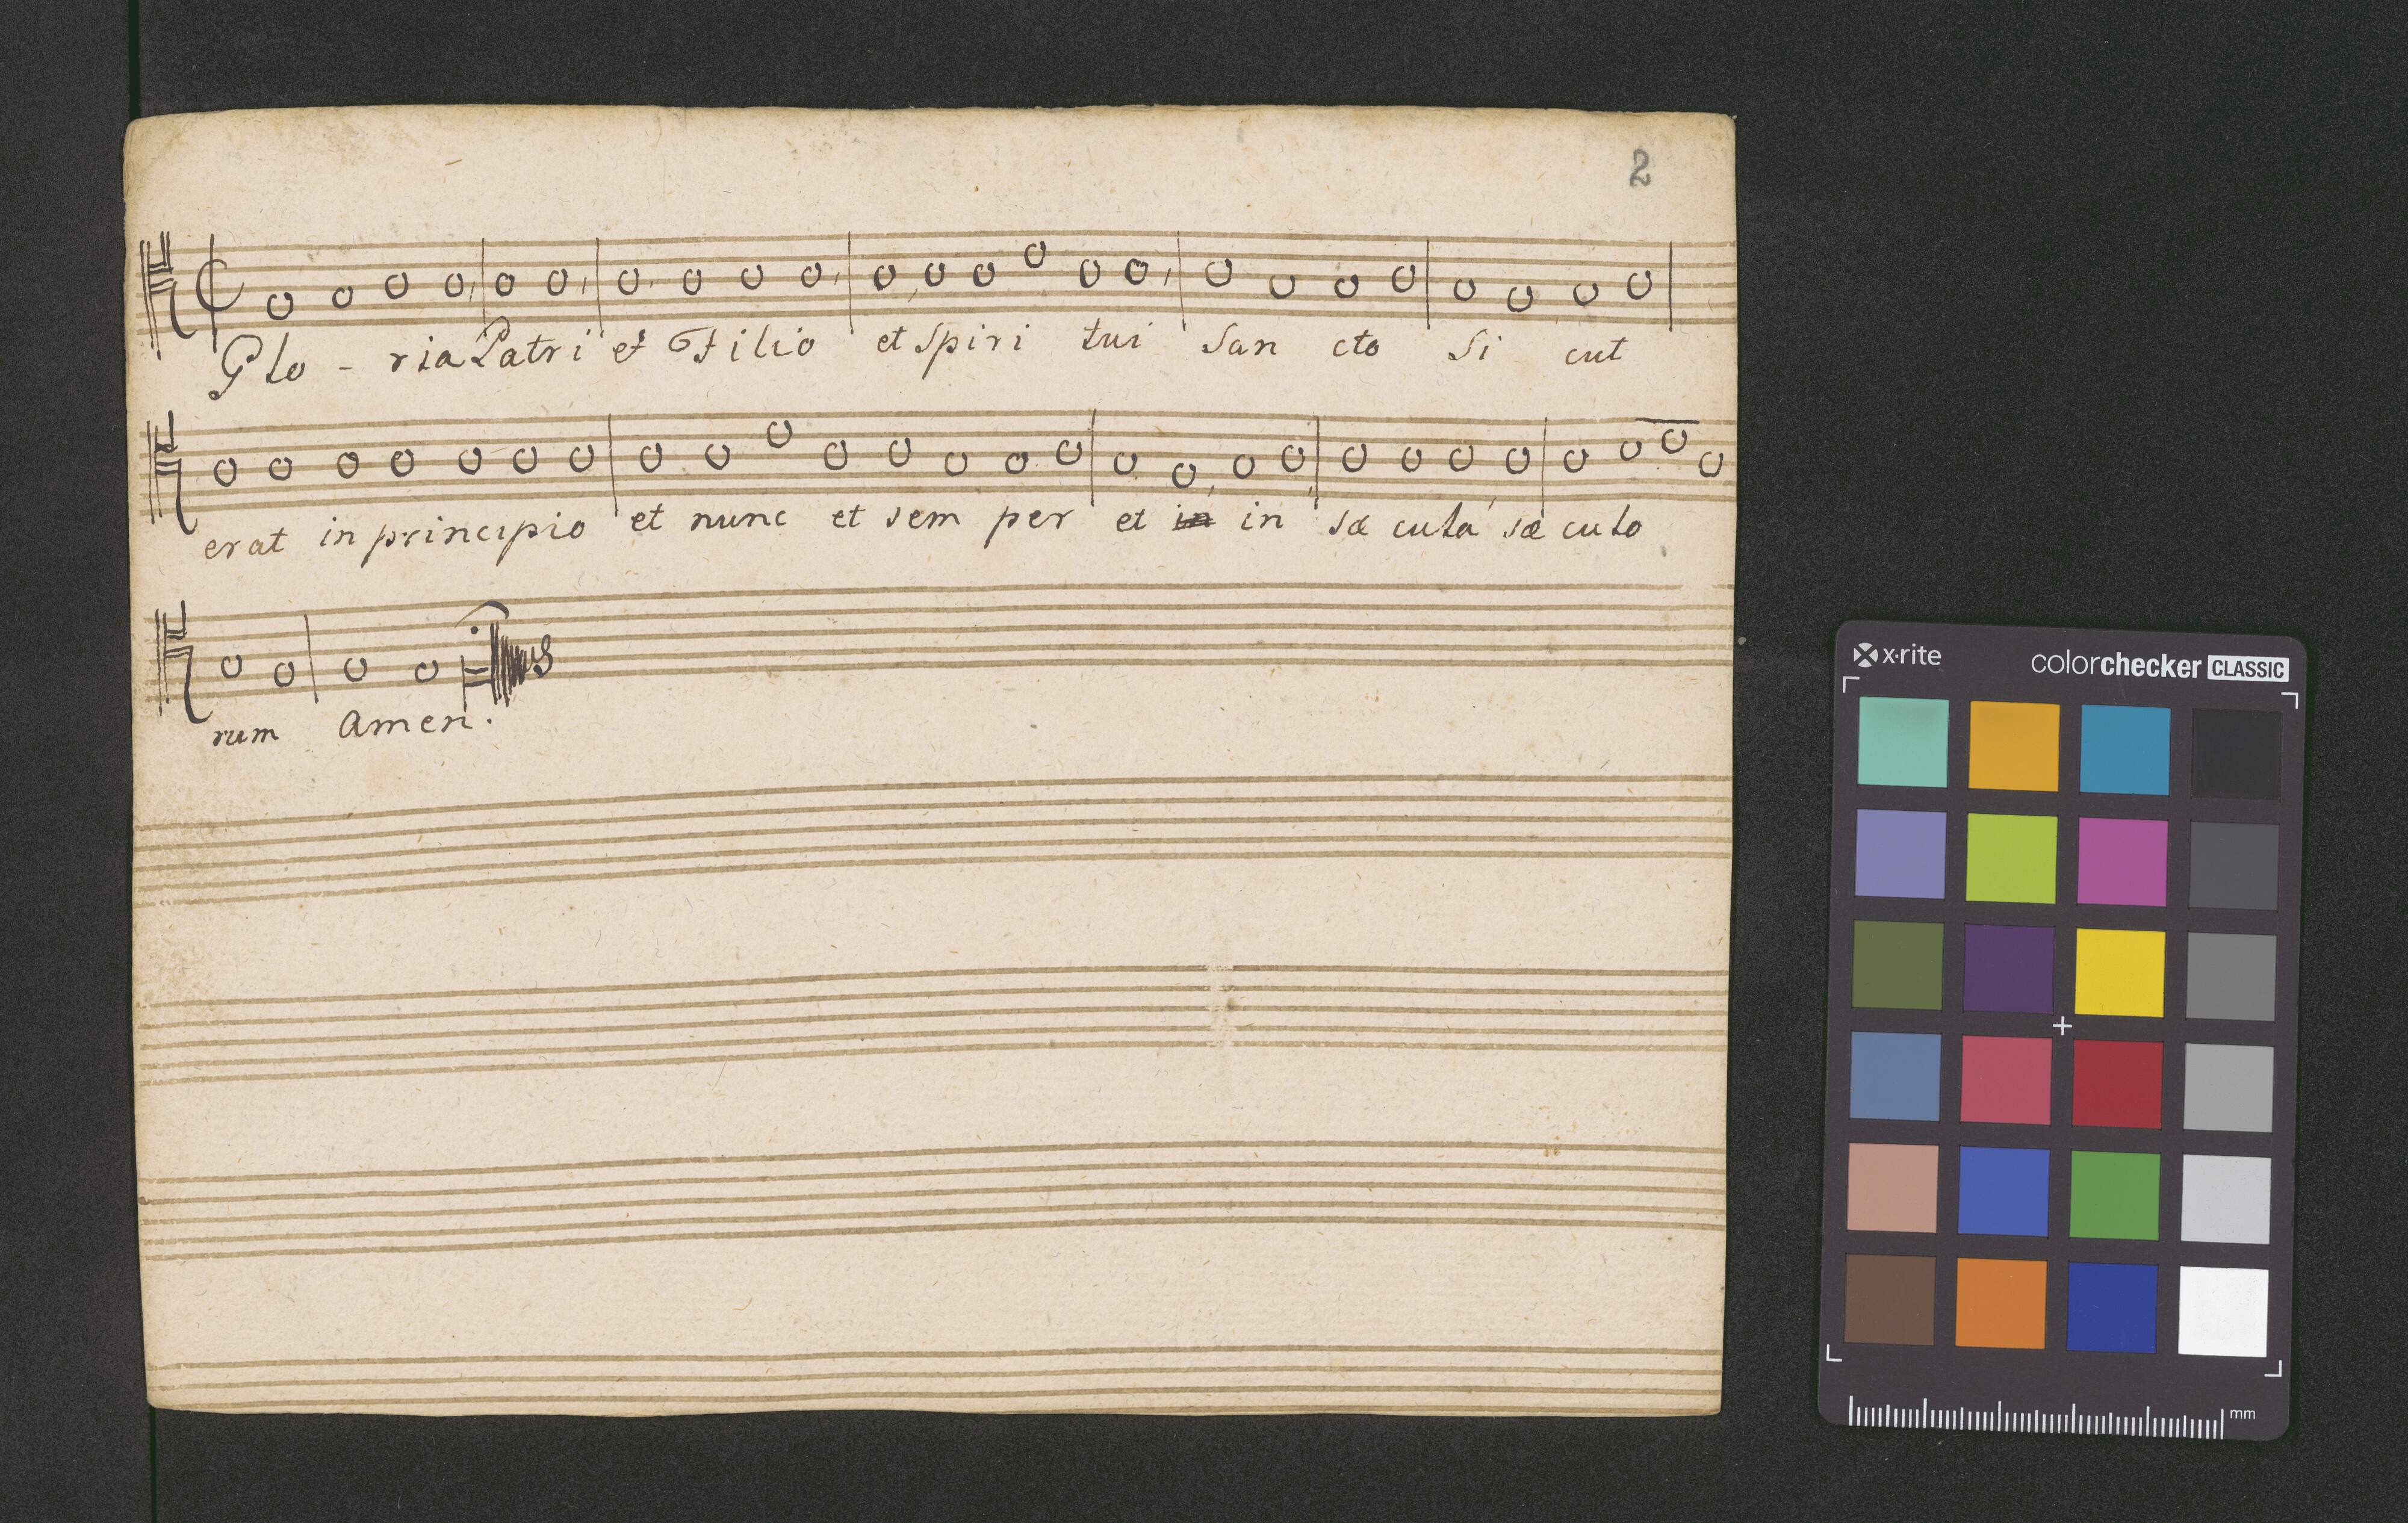 2
Glo - ria Patri et Filio et Spiri tui San cto Si cut
erat in principio et nunc et sem per et in in sæ cula sæ culo
rum Amen.
x·rite colorchecker CLASSIC
mm